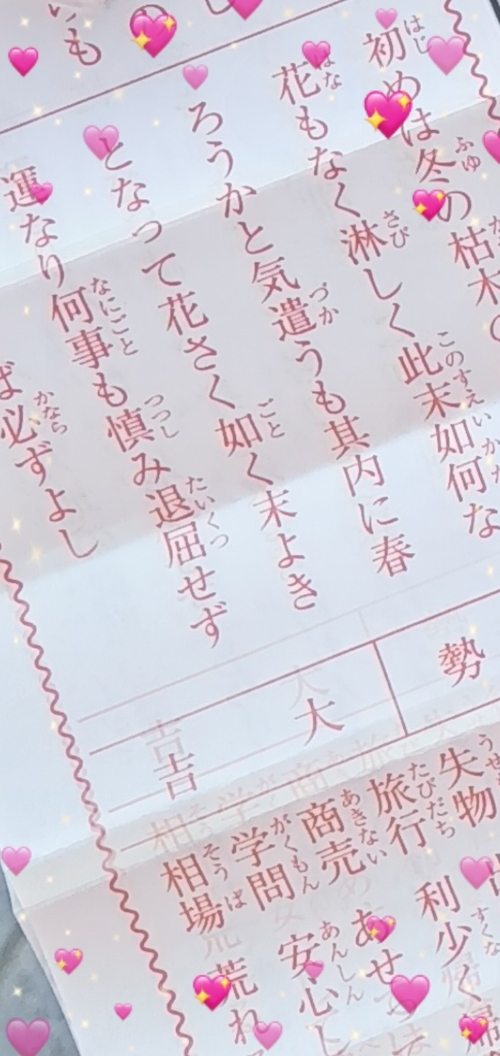 初めは冬の枯木の
花もなく淋しく此末如何な
ろうかと気遣うも其内に春
となって花さく如く末よき
運なり何事も慎み退屈せず
ば必ずよし
勢
大吉
失物
旅行 利少く
商売
学問 安心して
相場 荒れ